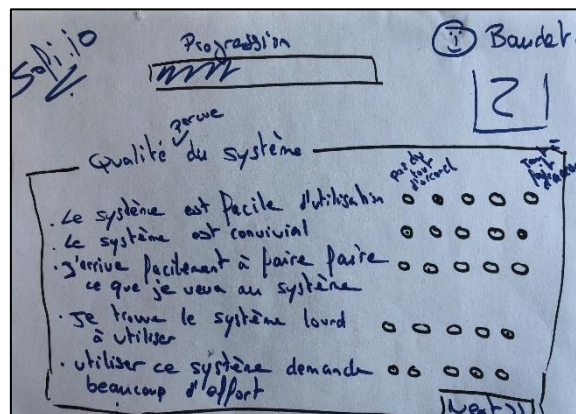 Progression
Baudet
2
perçue
Qualité du système
pas du tout d'accord
Tout à fait d'accord
. Le système est facile d'utilisation
. Le système est convivial
. J'arrive facilement à faire faire
ce que je veux au système
. Je trouve le système lourd
à utiliser
. utiliser ce système demande
beaucoup d'effort